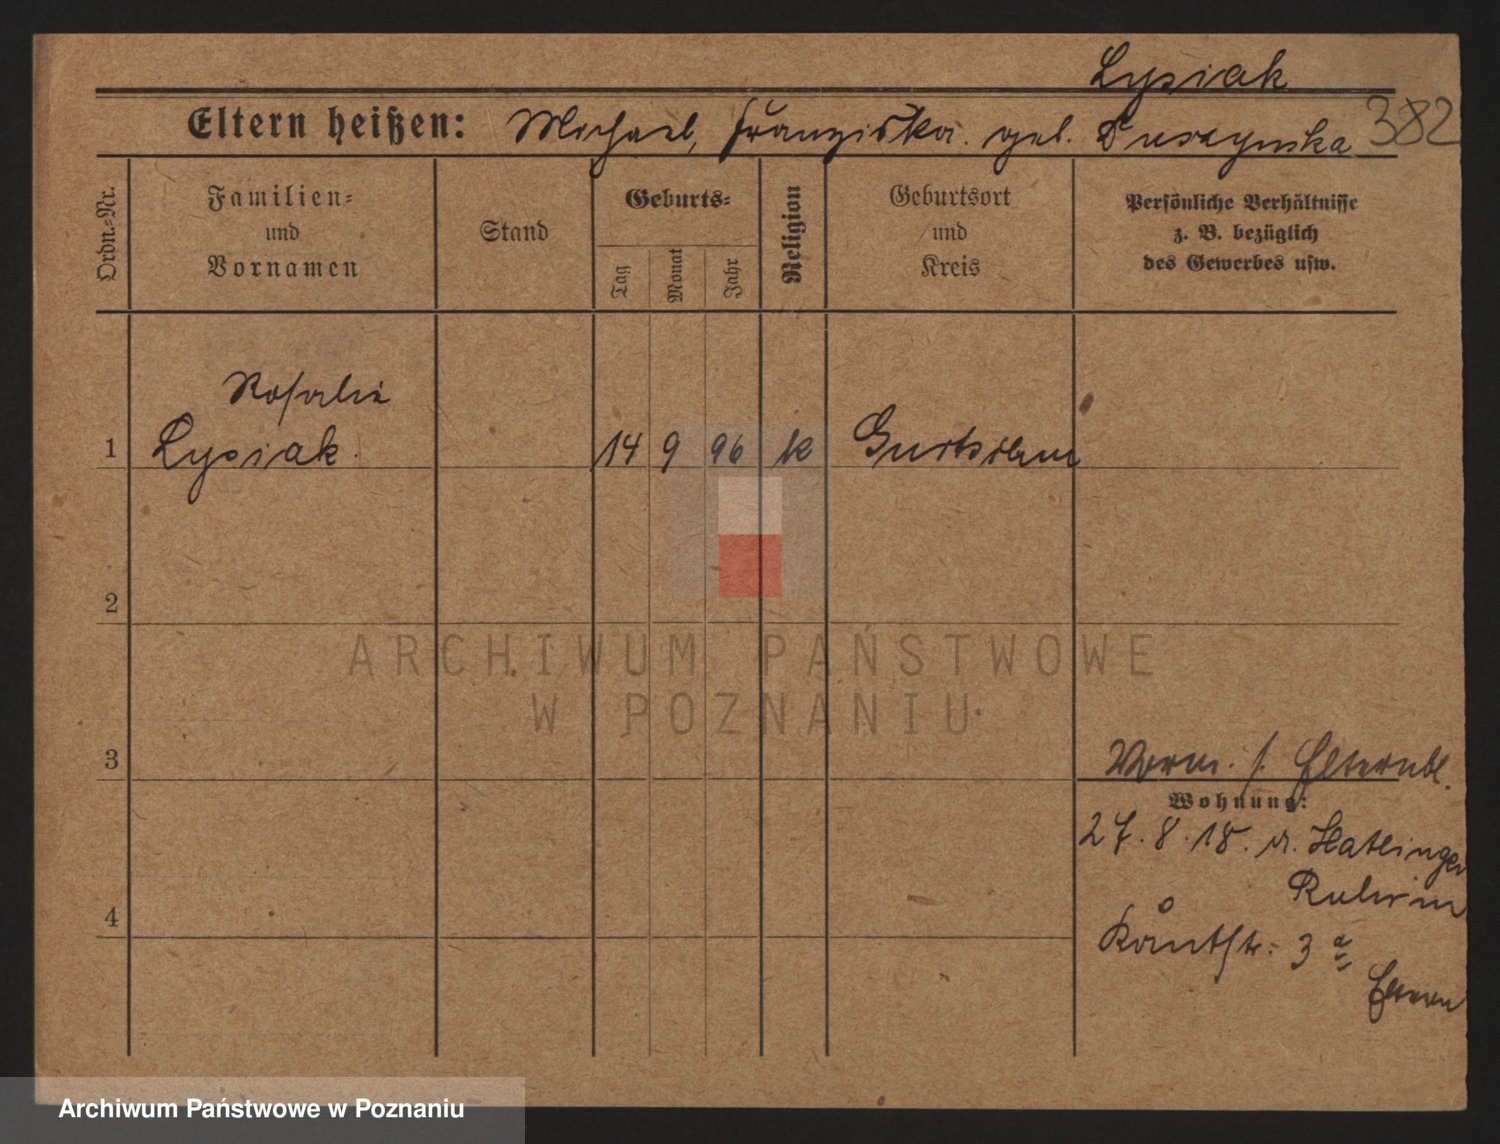 Lysiak
382
Eltern heißen: Michael, Franziska. geb. Duszynska
Ordn.-Nr.
Familien-
und
Vornamen
Stand
Geburts-
Tag
Monat
Jahr
Religion
Geburtsort
und
Kreis
Persönliche Verhältnisse
z. B. bezüglich
des Gewerbes usw.
Rosalie
1 Lysiak. 14 9 96 k
2
ARCHIWUM PAŃSTWOWE
W POZNANIU
3
Verm. s. Elternbl.
Wohnung:
27. 8. 18. v.
4
Kantstr. 3 a
Eltern
Archiwum Państwowe w Poznaniu